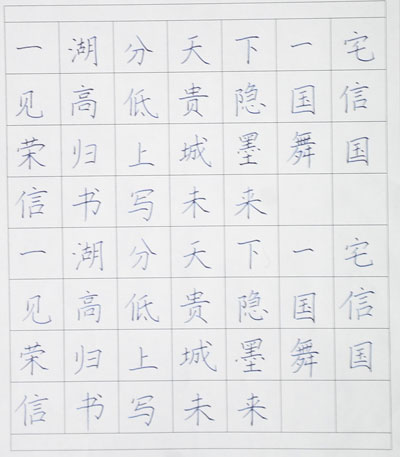 一湖分天下一宅
见高低贵隐国信
荣归上城墨舞国
信书写未来
一湖分天下一宅
见高低贵隐国信
荣归上城墨舞国
信书写未来